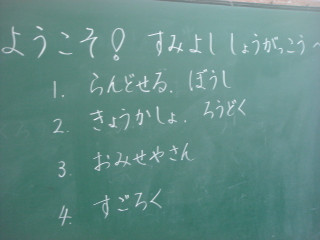 ようこそ! すみよししょうがっこうへ
1. らんどせる、ぼうし
2. きょうかしょ、ろうどく
3 おみせやさん
4. すごろく